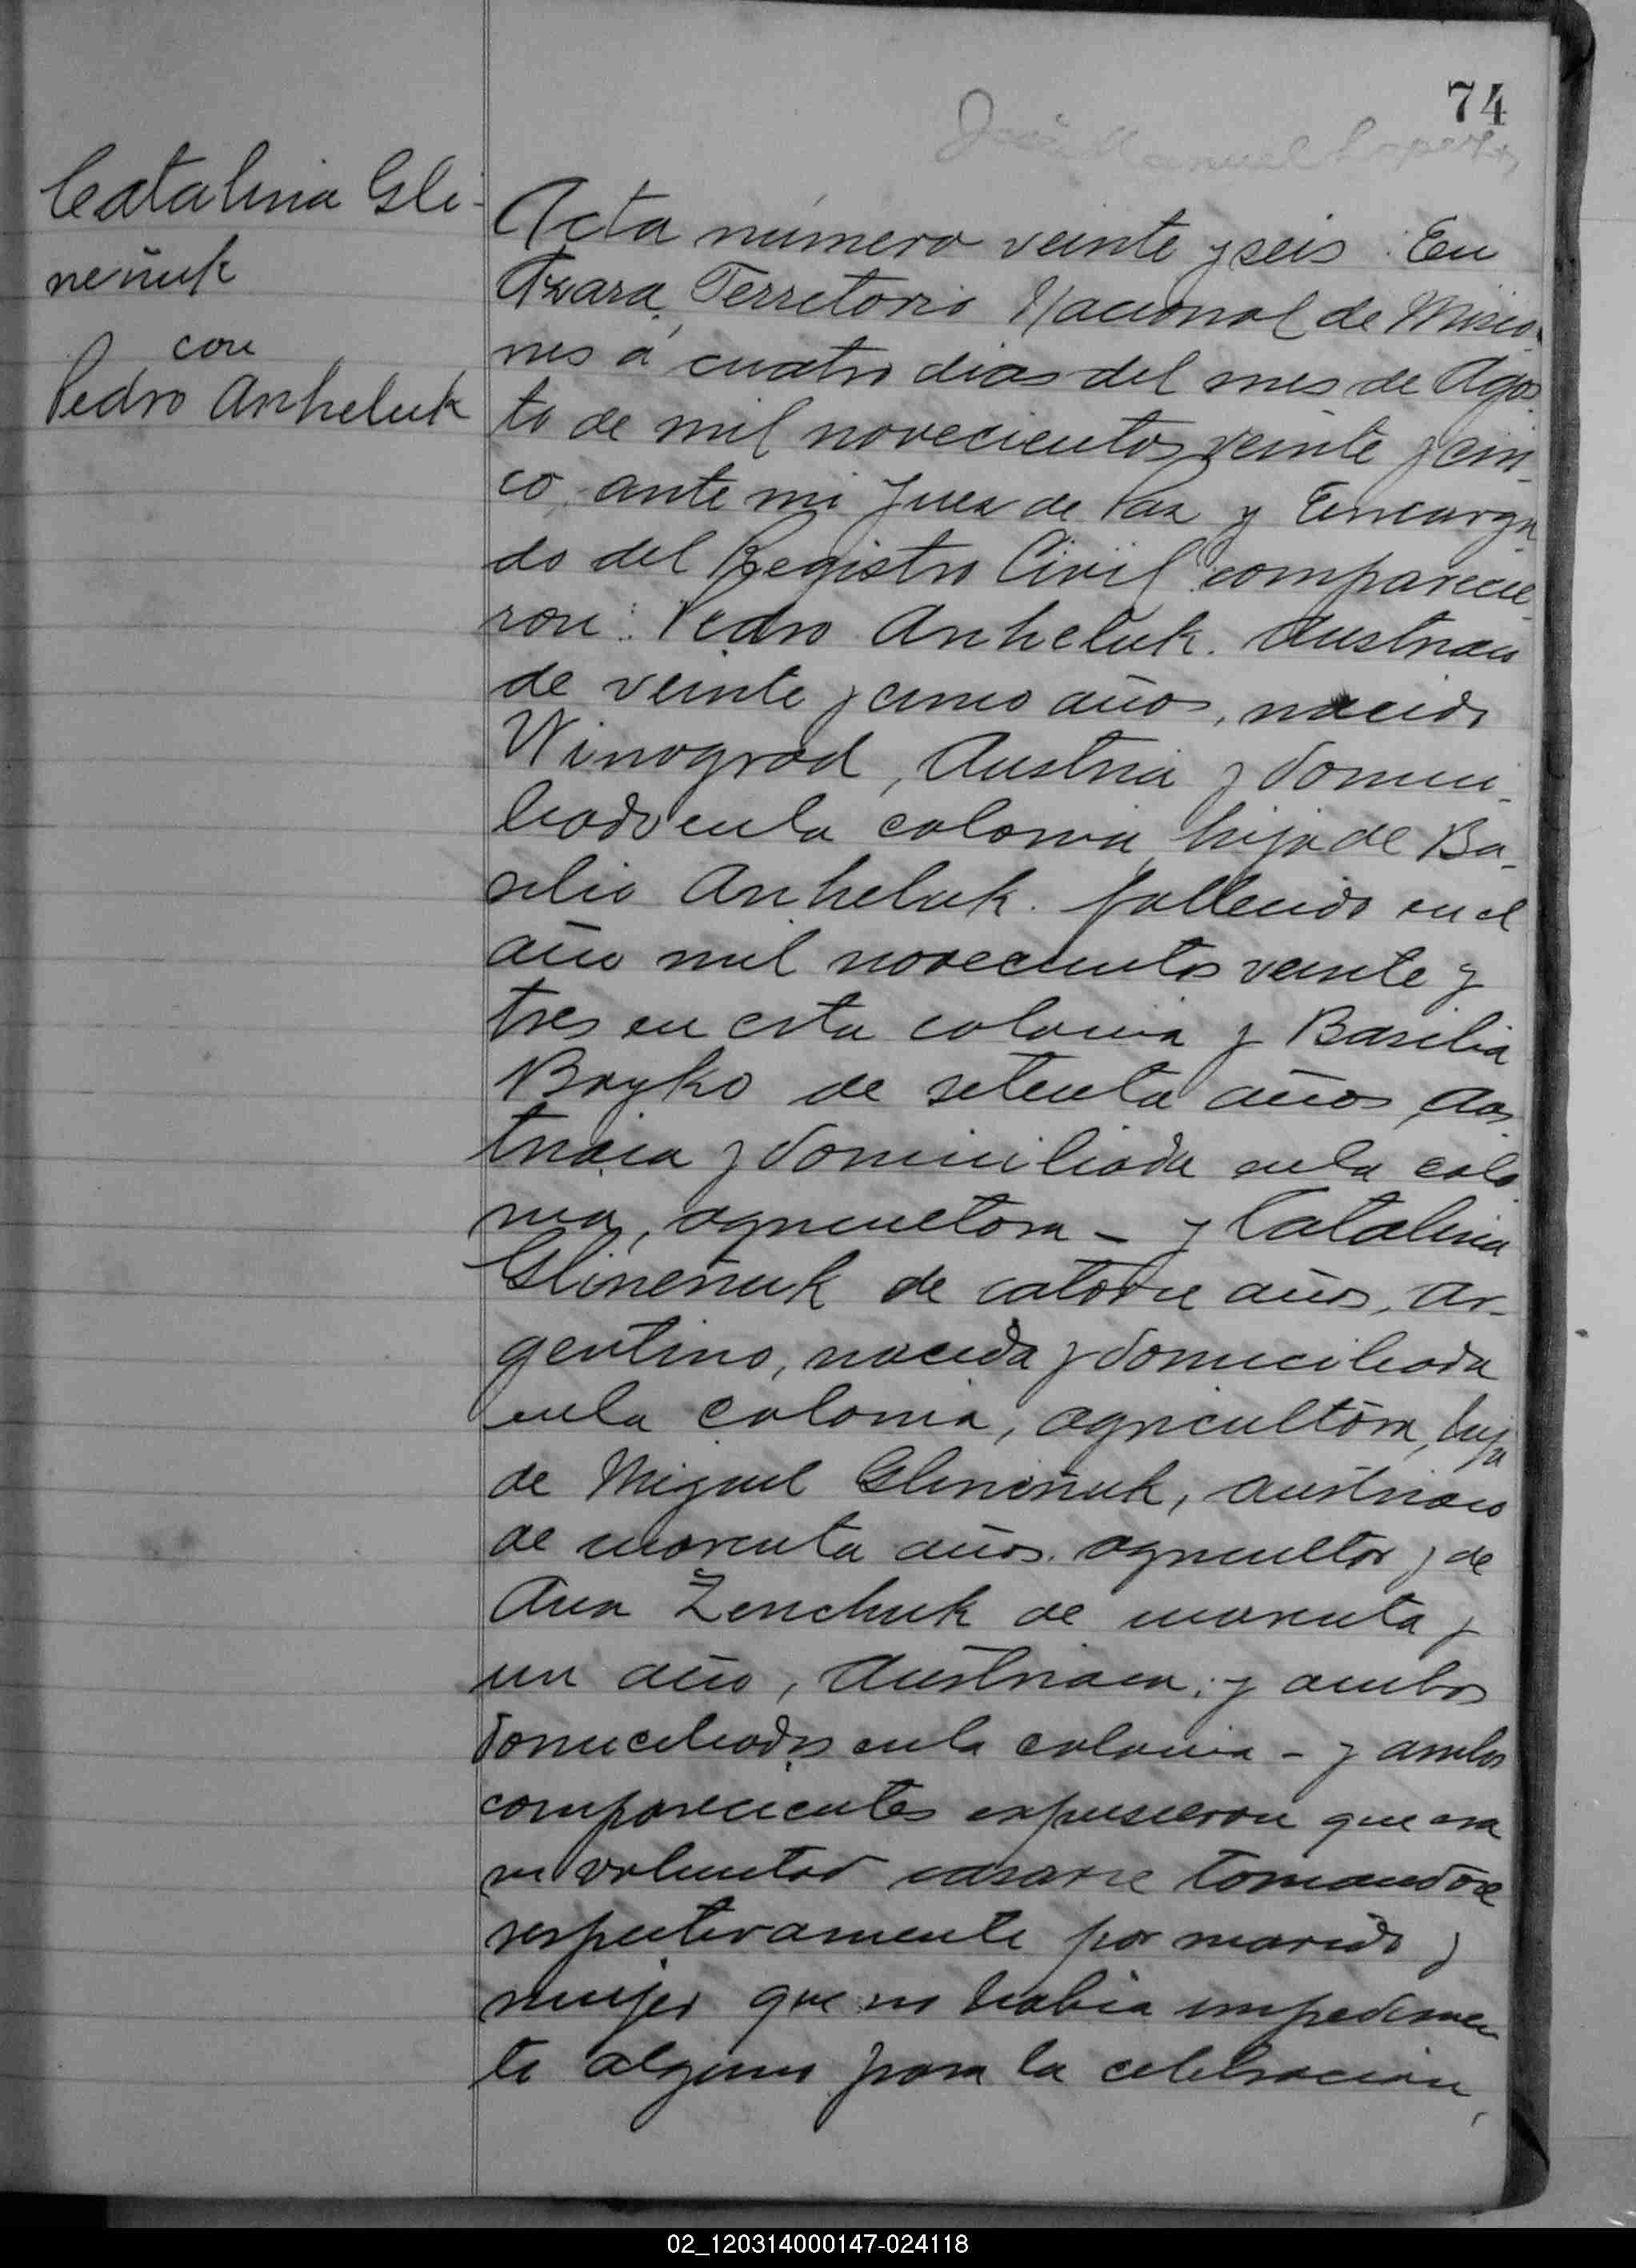 74
José Manuel Lopez
Catalina Gli-
neñuk
con
Pedro Anheluk
Acta número veinte y seis. En
Azara, Territorio Nacional de Misio-
nes á cuatro dias del mes de Agos-
to de mil novecientos veinte y cin-
co, ante mi Juez de Paz y Encarga-
do del Registro Civil comparecie-
ron: Pedro Anheluk. Austriaco
de veinte y cinco años, nacido
Winograd, Austria y domici-
liado en la colonia, hijo de Ba-
silio Anheluk. fallecido en el
año mil novecientos veinte y
tres en esta colonia y Basilia
Boyko de setenta años, aus-
triaca y domiciliada en la colo-
nia, agricultora - y Catalina
Glineñuk de catorce años, ar-
gentino, nacida y domiciliada
en la colonia, agricultora, hija
de Miguel Glineñuk, austriaco
de cuarenta años. agricultor y de
Ana Zenchuk de cuarenta y
un año, Austriaca; y ambos
domiciliados en la colonia - y ambos
comparecientes expusieron que era
su voluntad casarse tomandose
respectivamente por marido y
mujer que no habia impedimen-
to alguno para la celebracion,
02_120314000147-024118